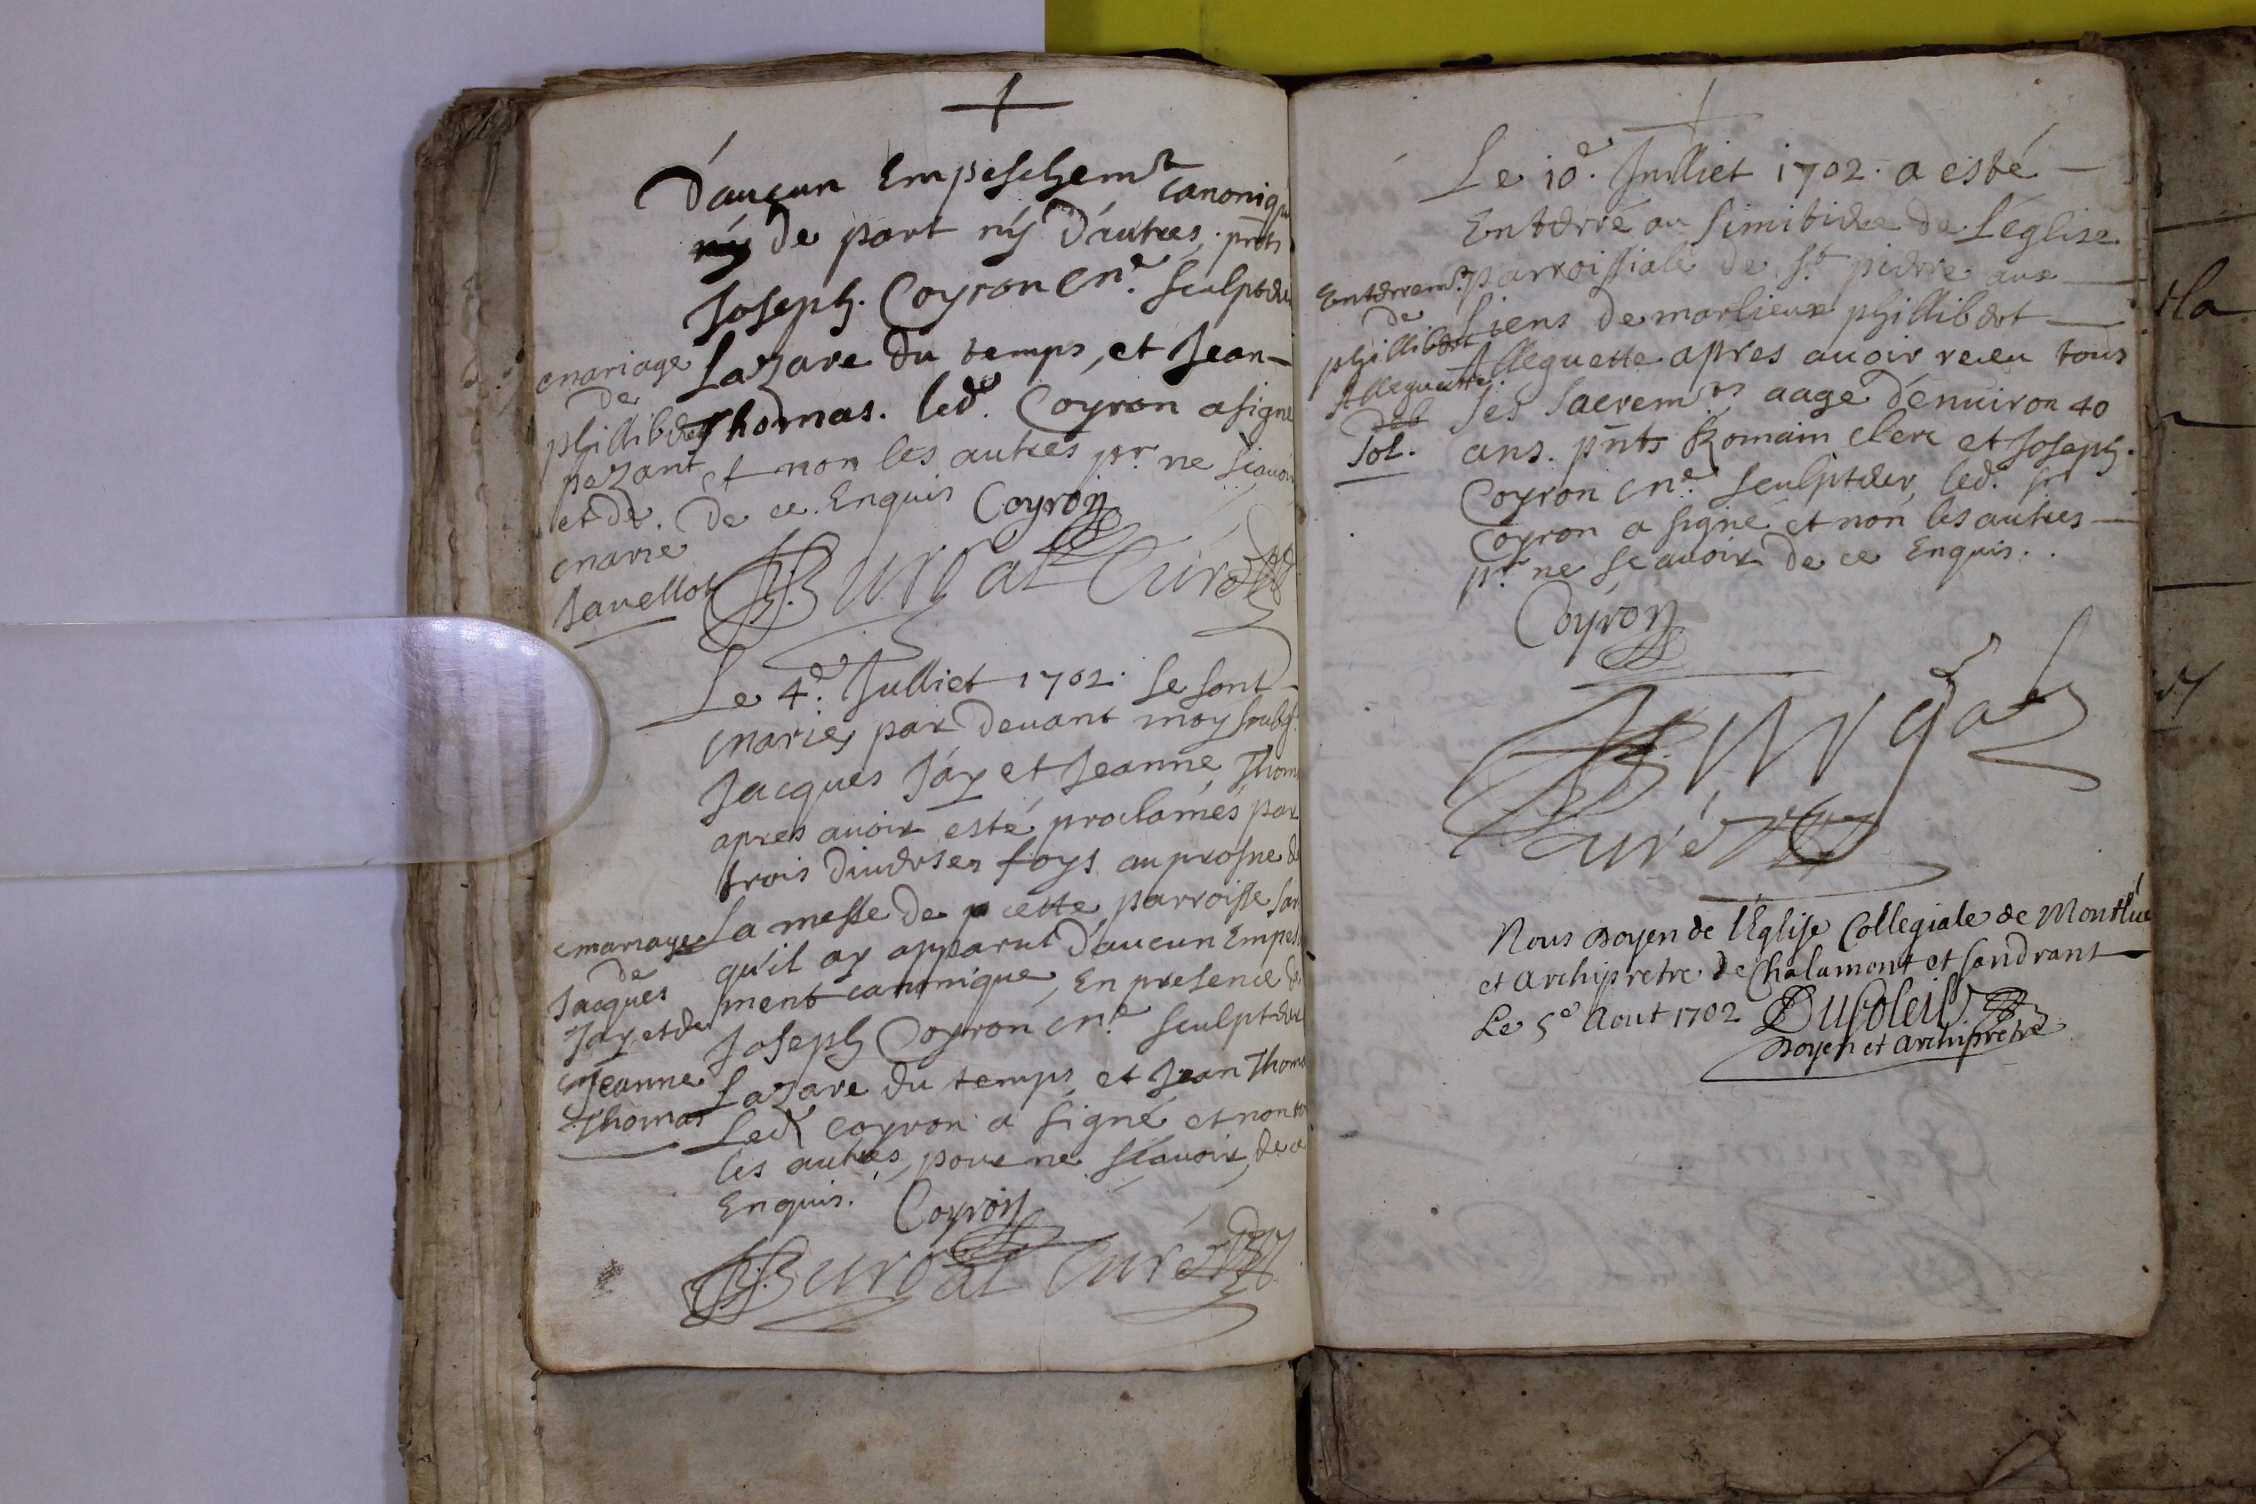 D'aucun Empeschemt canoniqu
de part ny D'autres, pnts
Joseph. Coyron Me. sculpteu
mariage
de
phillibert
pezant
et de
marie
Javellot
Lazare du temps, et Jean
Thomas. led. Coyron a signe
et non les autres pr. ne scavoi
de ce. Enquis Coyron
Burgat Curé
Le 4e. Julliet 1702. se sont
mariez par devant moy soubs.
Jacques Jay et Jeanne Thom
apres avoir esté proclamés par
trois diverses foys au prosne d
mariage
de
Jacques
Jay et de
Jeanne
Thomas
La messe de cette parroisse san
qu'il ay apparut d'aucun Empes
ment canonique, En presence d
Joseph Coyron Me. sculpteur
Lazare du temps, et Jean Thoma
Led. coyron a signé et non
les autres, pour ne scavoir, de ce
Enquis. Coyron
Burgat Curé
Le 10e. Julliet 1702. a esté
Enterré au Simitiere de L'église
Enterremt.
de
phillibert
Alleguette
Sol.
parroissiale de St. pierre aux
Liens de marlieux phillibert
Alleguette apres avoir receu tous
ses sacremts aagé d'environ 40
ans. pnts Romain Clerc et Joseph.
Coyron Me. sculpteur, led. sr
Coyron a signé et non les autres
pr. ne scavoir de ce Enquis.
Coyron
Burgat
Curé
Nous Doyen de l'Eglise Collegiale de Montlue
et Archipretre de Chalamont et Sandrant
Le 5e Aout 1702 Dusoleil
Doyen et archiprêtre